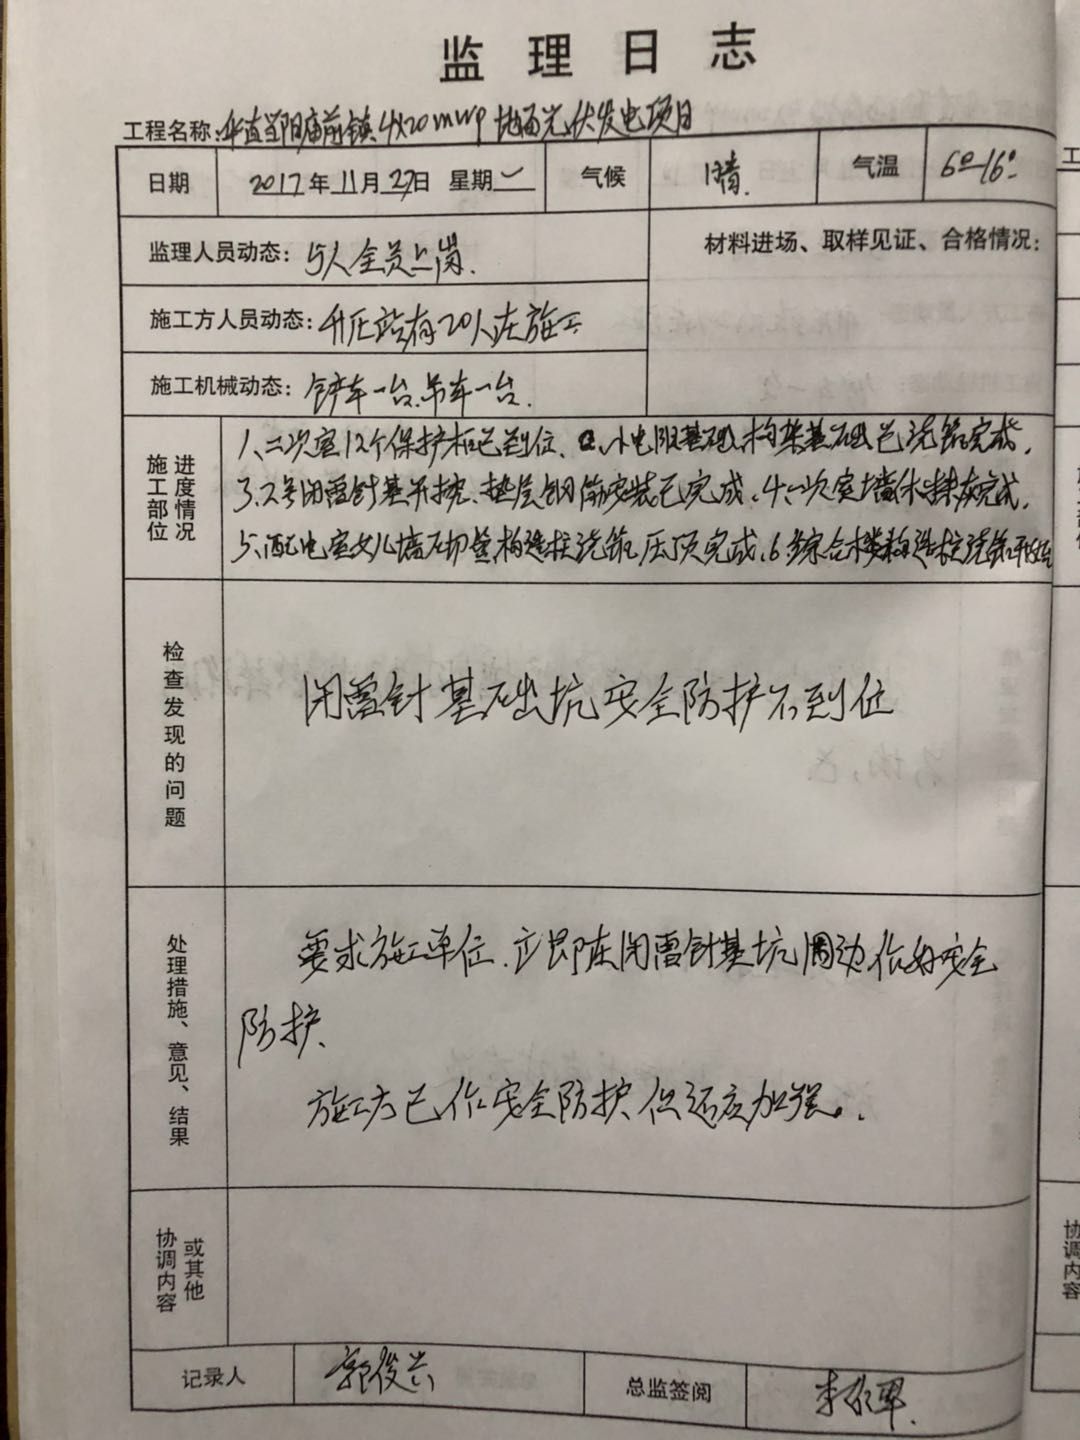 监理日志
工程名称:华直当阳庙前镇4×20mwp地面光伏发电项目
日期 2017年11月27日 星期一 气候 晴. 气温 6°-16°
监理人员动态: 5人全员上岗. 材料进场、取样见证、合格情况:
施工方人员动态: 升压站有20人在施工
施工机械动态: 铲车一台.吊车一台.
施工部位 进度情况
1、二次室12个保护柜已到位、2、小电阻基础、构架基础已浇筑完成.
3、2号闭雷针基开挖、垫层钢筋安装已完成.4、二次室墙体抹灰完成.
5、配电室女儿墙石切垒构造柱浇筑压顶完成、6.综合楼构造柱浇筑
检查发现的问题
闭雷针基础坑安全防护不到位
处理措施、意见、结果
要求施工单位.立即在闭雷针基坑周边作好安全
防护、
施工方已作安全防护、但还应加强..
协调内容 或其他
记录人 郭俊 总监签阅
工
协调内容